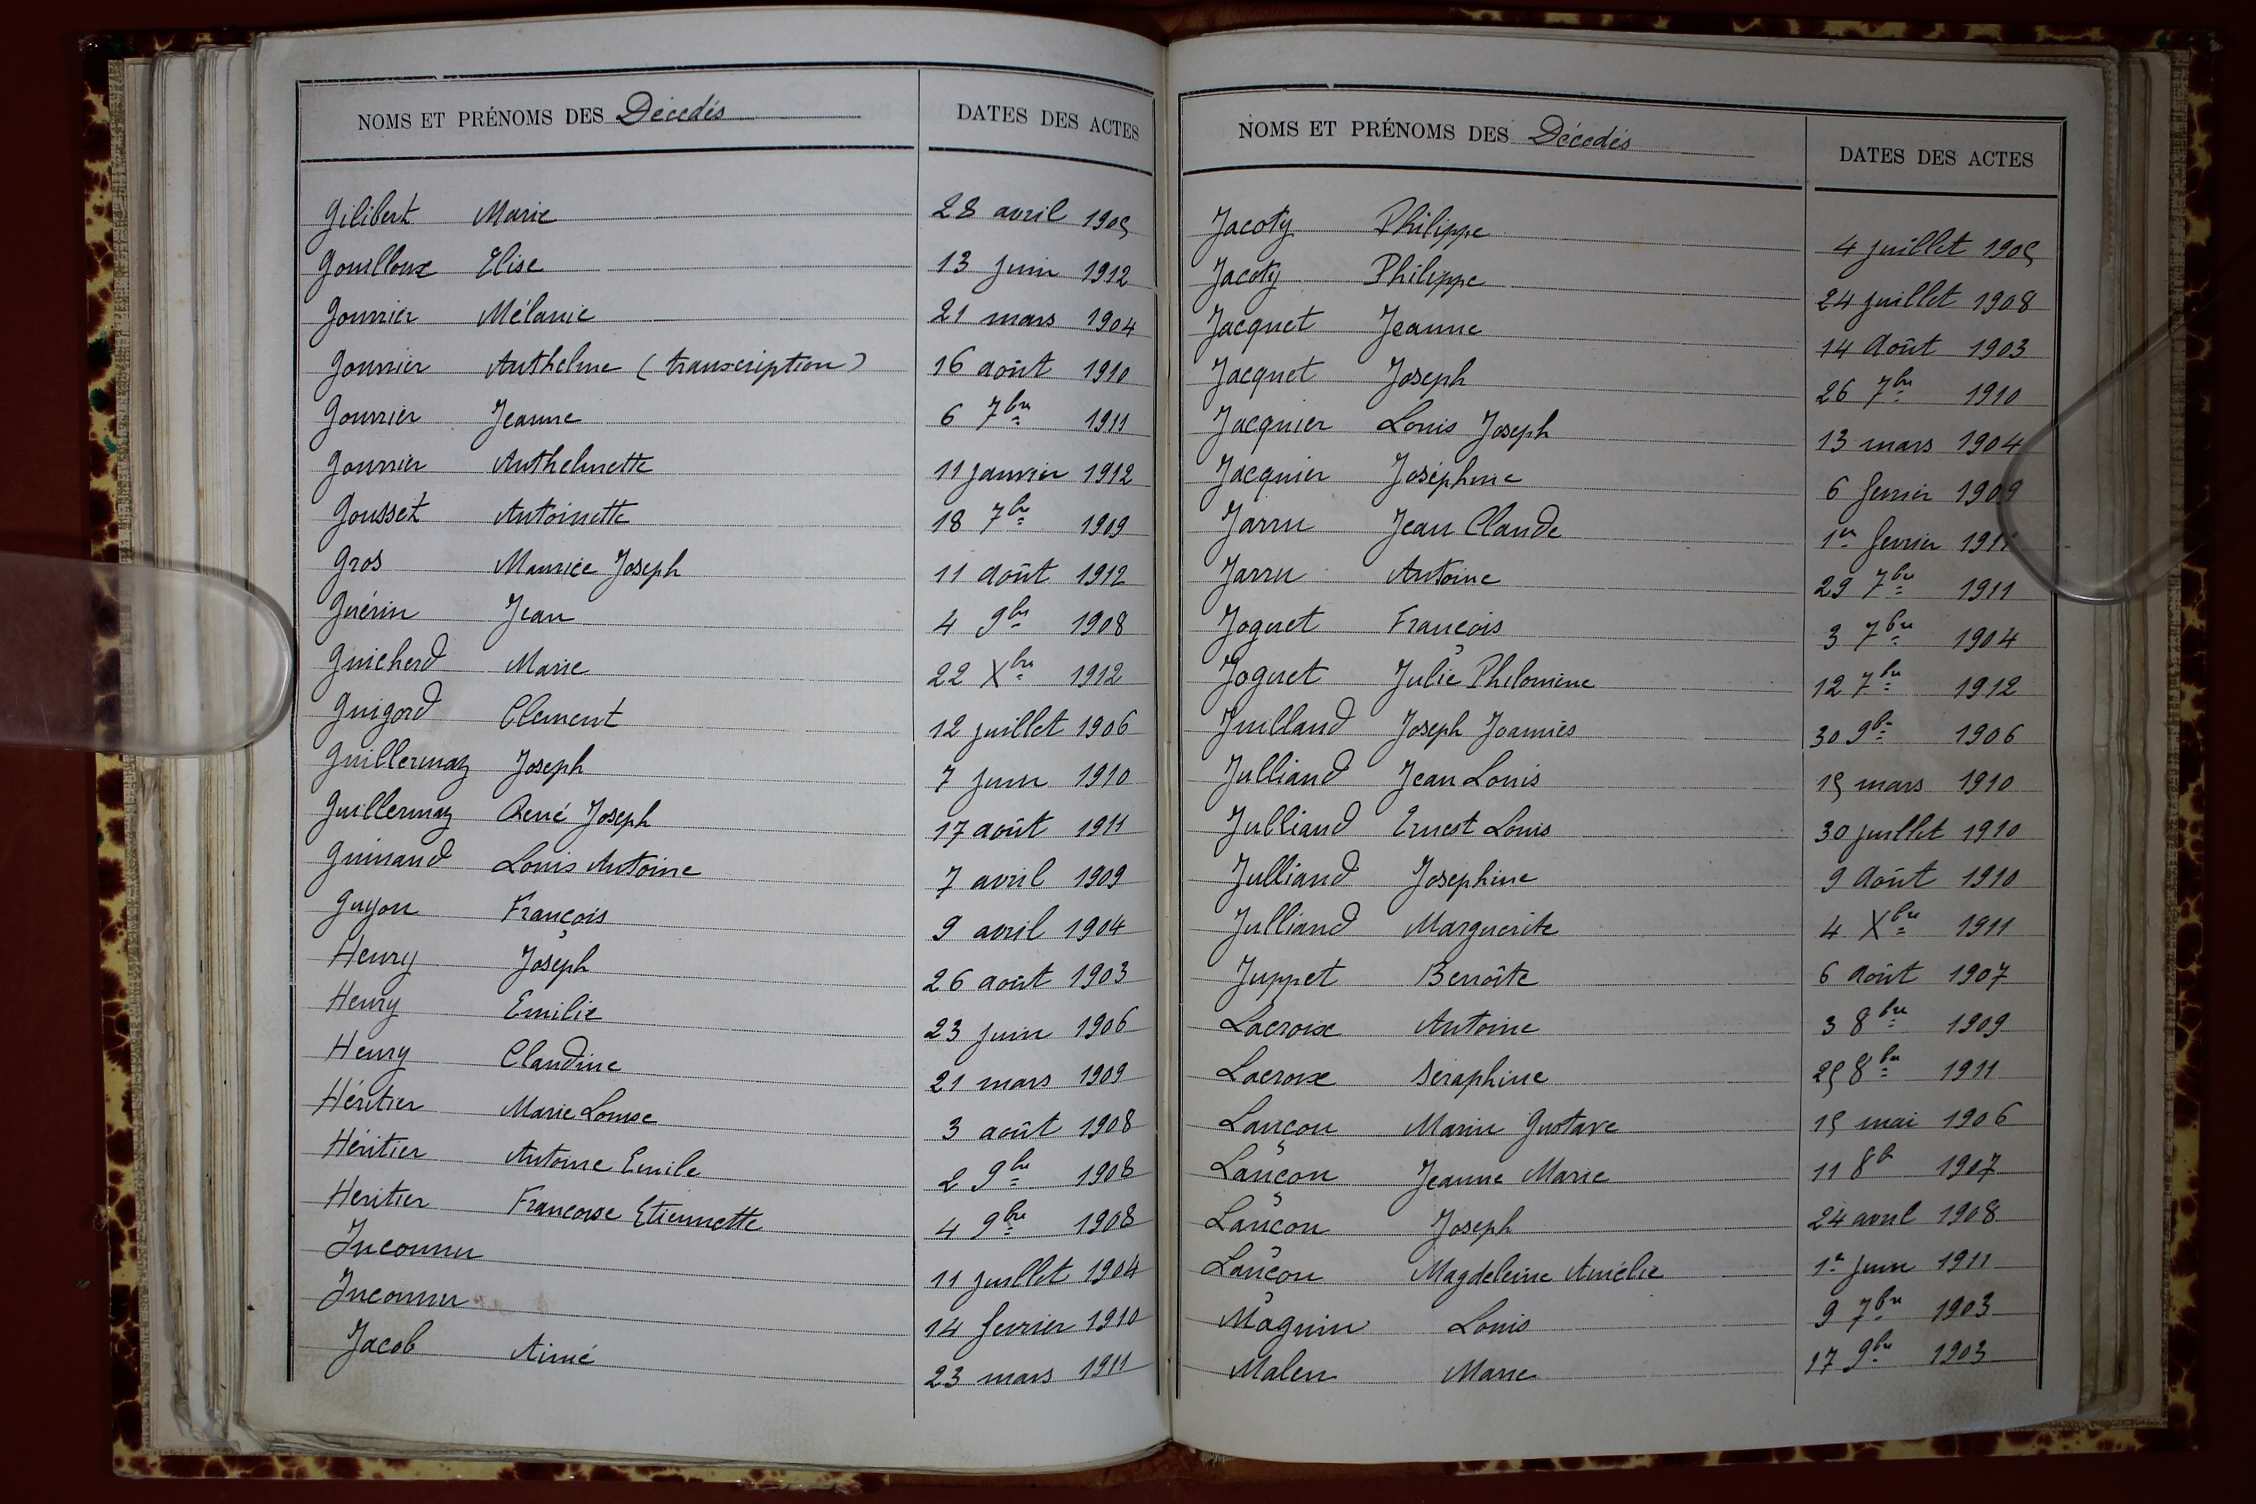 NOMS ET PRÉNOMS DES Décedés DATES DES ACTES
Gilibert Marie 28 avril 1905
Gouilloux Elise 13 juin 1912
Gouvrier Mélanie 21 mars 1904
Gouvrier Anthelme (transcription) 16 août 1910
Gouvrier Jeanne 6 7bre 1911
Gouvrier Anthelmette 11 janvier 1912
Gousset Antoinette 18 7bre 1909
Gros Maurice Joseph 11 août 1912
Guérin Jean 4 9bre 1908
Guicherd Marie 22 Xbre 1912
Guigord Clement 12 juillet 1906
Guillermaz Joseph 7 juin 1910
Guillermaz René Joseph 17 août 1911
Guinand Louis Antoine 7 avril 1909
Guyon François 9 avril 1904
Henry Joseph 26 août 1903
Henry Emilie 23 juin 1906
Henry Claudine 21 mars 1909
Héritier Marie Louise 3 août 1908
Héritier Antoine Emile 2 9bre 1908
Héritier Francoise Etiennette 4 9bre 1908
Inconnu 11 juillet 1904
Inconnu 14 fevrier 1910
Jacob Aimé 23 mars 1911
NOMS ET PRÉNOMS DES Décedés DATES DES ACTES
Jacoty Philippe 4 juillet 1905
Jacoty Philippe 24 juillet 1908
Jacquet Jeanne 14 août 1903
Jacquet Joseph 26 7bre 1910
Jacquier Louis Joseph 13 mars 1904
Jacquier Joséphine 6 fevrier 1909
Jarru Jean Claude 1er fevrier 1911
Jarru Antoine 29 7bre 1911
Joguet François 3 7bre 1904
Joguet Julie Philomine 12 7bre 1912
Juilland Joseph Joannès 30 9bre 1906
Julliand Jean Louis 15 mars 1910
Julliand Ernest Louis 30 juillet 1910
Julliand Josephine 9 août 1910
Julliand Marguerite 4 Xbre 1911
Juppet Benoîte 6 août 1907
Lacroix Antoine 3 8bre 1909
Lacroix Séraphine 25 8bre 1911
Lançon Marin Gustave 15 mai 1906
Lançon Jeanne Marie 11 8b 1907
Lançon Joseph 24 avril 1908
Lançon Magdeleine Amélie 1er juin 1911
Maguin Louis 9 7bre 1903
Malen Marie 17 9bre 1903